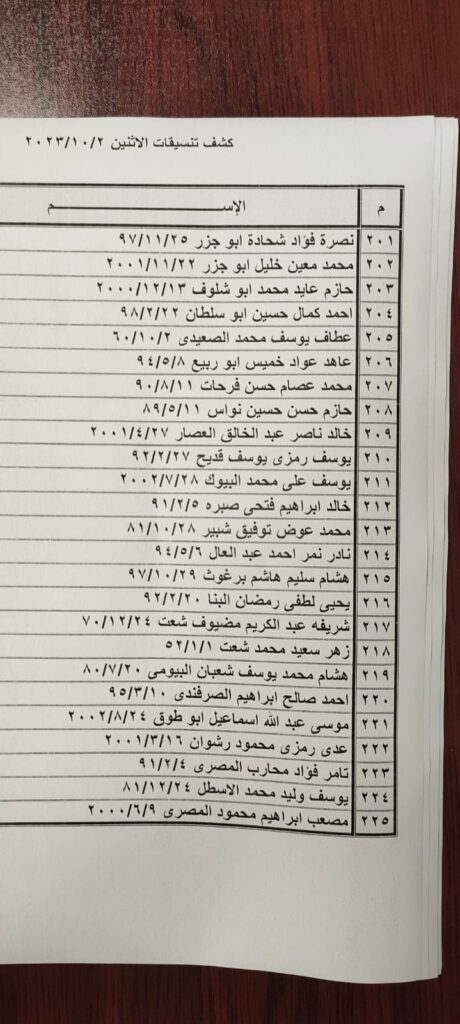 كشف تنسيقات الاثنين ٢٠٢٣/١٠/٢
م الإســـــــــم
٢٠١ نصرة فؤاد شحادة ابو جزر ٩٧/١١/٢٥
٢٠٢ محمد معين خليل ابو جزر ٢٠٠١/١١/٢٢
٢٠٣ حازم عايد محمد ابو شلوف ٢٠٠٠/١٢/١٣
٢٠٤ احمد كمال حسين ابو سلطان ٩٨/٢/٢٢
٢٠٥ عطاف يوسف محمد الصعيدى ٦٠/١٠/٢
٢٠٦ عاهد عواد خميس ابو ربيع ٩٤/٥/٨
٢٠٧ محمد عصام حسن فرحات ٩٠/٨/١١
٢٠٨ حازم حسن حسين نواس ٨٩/٥/١١
٢٠٩ خالد ناصر عبد الخالق العصار ٢٠٠١/٤/٢٧
٢١٠ يوسف رمزى يوسف قديح ٩٢/٢/٢٧
٢١١ يوسف على محمد البيوك ٢٠٠٢/٧/٢٨
٢١٢ خالد ابراهيم فتحى صبره ٩١/٢/٥
٢١٣ محمد عوض توفيق شبير ٨١/١٠/٢٨
٢١٤ نادر نمر احمد عبد العال ٩٤/٥/٦
٢١٥ هشام سليم هاشم برغوث ٩٧/١٠/٢٩
٢١٦ يحيى لطفى رمضان البنا ٩٢/٢/٢٠
٢١٧ شريفه عبد الكريم مضيوف شعت ٧٠/١٢/٢٤
٢١٨ زهر سعيد محمد شعت ٥٢/١/١
٢١٩ هشام محمد يوسف شعبان البيومى ٨٠/٧/٢٠
٢٢٠ احمد صالح ابراهيم الصرفندى ٩٥/٣/١٠
٢٢١ موسى عبد الله اسماعيل ابو طوق ٢٠٠٢/٨/٢٤
٢٢٢ عدى رمزى محمود رشوان ٢٠٠١/٣/١٦
٢٢٣ تامر فؤاد محارب المصرى ٩١/٢/٤
٢٢٤ يوسف وليد محمد الاسطل ٨١/١٢/٢٤
٢٢٥ مصعب ابراهيم محمود المصرى ٢٠٠٠/٦/٩